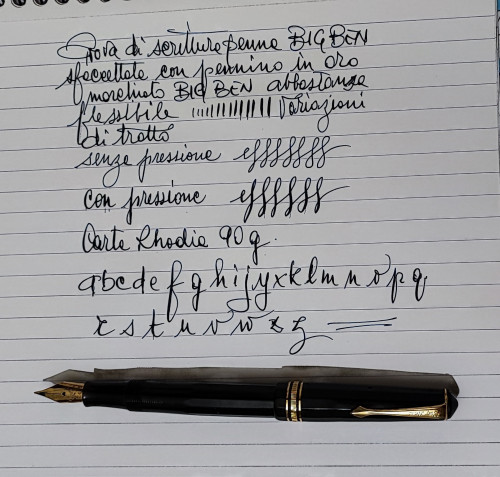 Prova di scritture penna BIG BEN
sfaccettata con pennino in oro
marchiato BIG BEN abbastanza
flessibile Variazioni
di tratto
senza pressione
con pressione
Carta Rhodia 90 g.
abcdefghijyxklmnopq
r s t u v w x z